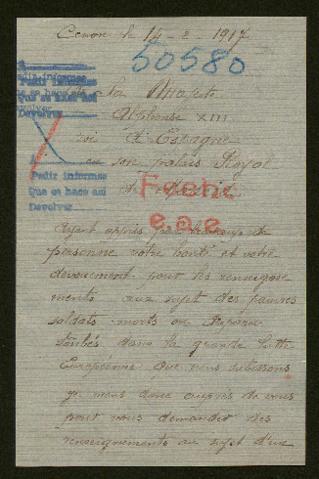 Cenon le 14-2-1917
50580
Pedir informes
que se hace así
Devolver
Sa Majesté
Alphonse XIII
roi d'Espagne
en son palais Royal
Pedir informes
Que se hace así
Devolver
Fecht
e.a.e
Ayant appris par
personne votre bonté et votre
devouement pour les renseigne
ments aux sujet des pauvres
soldats morts ou
dans la grande lutte
Européenne que nous subissons
je viens donc auprès de vous
pour vous demander des
renseignements au sujet d'un